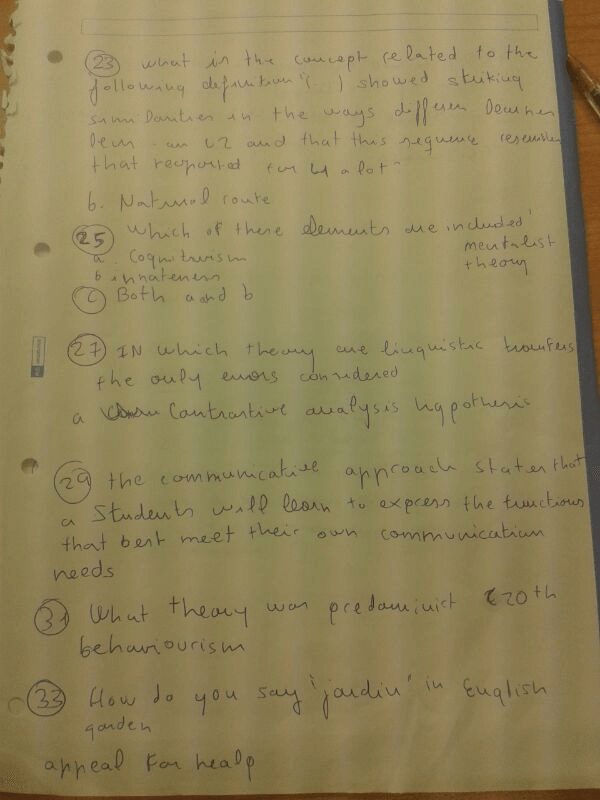 23 what is the concept related to the
following definition "(...) showed striking
similarities in the ways differen learner
learn an L2 and that this sequence resembles
that reported for L1 a lot"
b. Natural route
25 Which of these elements are included
mentalist
a. Cognitivism
theory
b innateness
c Both a and b
27 IN which theory are linguistic transfers
the only errors considered
a Contrastive analysis hypothesis
29 the communicative approach states that
a Students will learn to express the functions
that best meet their own communication
needs
31 What theory was predominict 20th
behaviourism
33 How do you say "jardin" in English
garden
appeal For healp